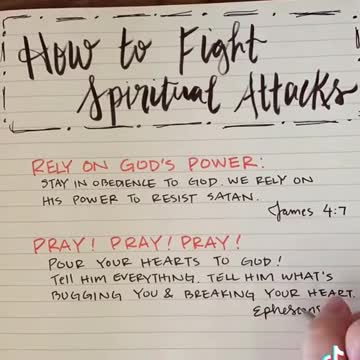 How to Fight
Spiritual Attacks
RELY ON GOD'S POWER:
STAY IN OBEDIENCE TO GOD. WE RELY ON
HIS POWER TO RESIST SATAN.
James 4:7
PRAY! PRAY! PRAY!
POUR YOUR HEARTS TO GOD!
Tell HIM EVERYTHING. TELL HIM WHAT'S
BUGGING YOU & BREAKING YOUR HEART.